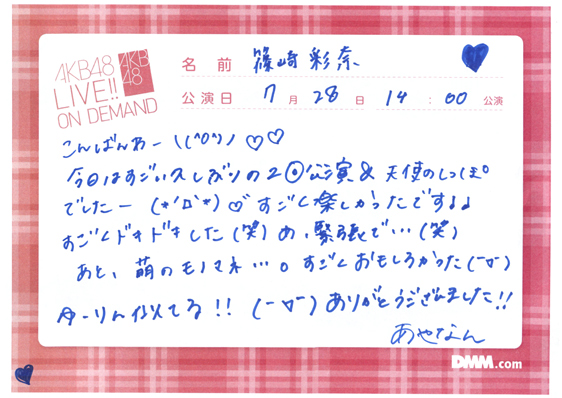 AKB48
LIVE!!
ON DEMAND
AKB
48
名前 篠崎彩奈
公演日 7月28日 14:00公演
こんばんわー \(^o^)/ ♡♡
今日はすごい久しぶりの2回公演& 天使のしっぽ。
でしたー (*'ロ'*)♡ すごく楽しかったです♪♪
すごくドキドキした(笑)め、緊張で…(笑)
あと、萌のモノマネ…。すごくおもしろかった(ー▽ー)
ゆーりん似てる!! (ー▽ー)ありがとうございました!!
あやなん
DMM.com